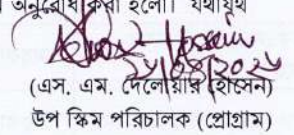 অনুরোধ করা হলো। যথাযথ
(এস. এম. দেলোয়ার হোসেন)
উপ স্কিম পরিচালক (প্রোগ্রাম)